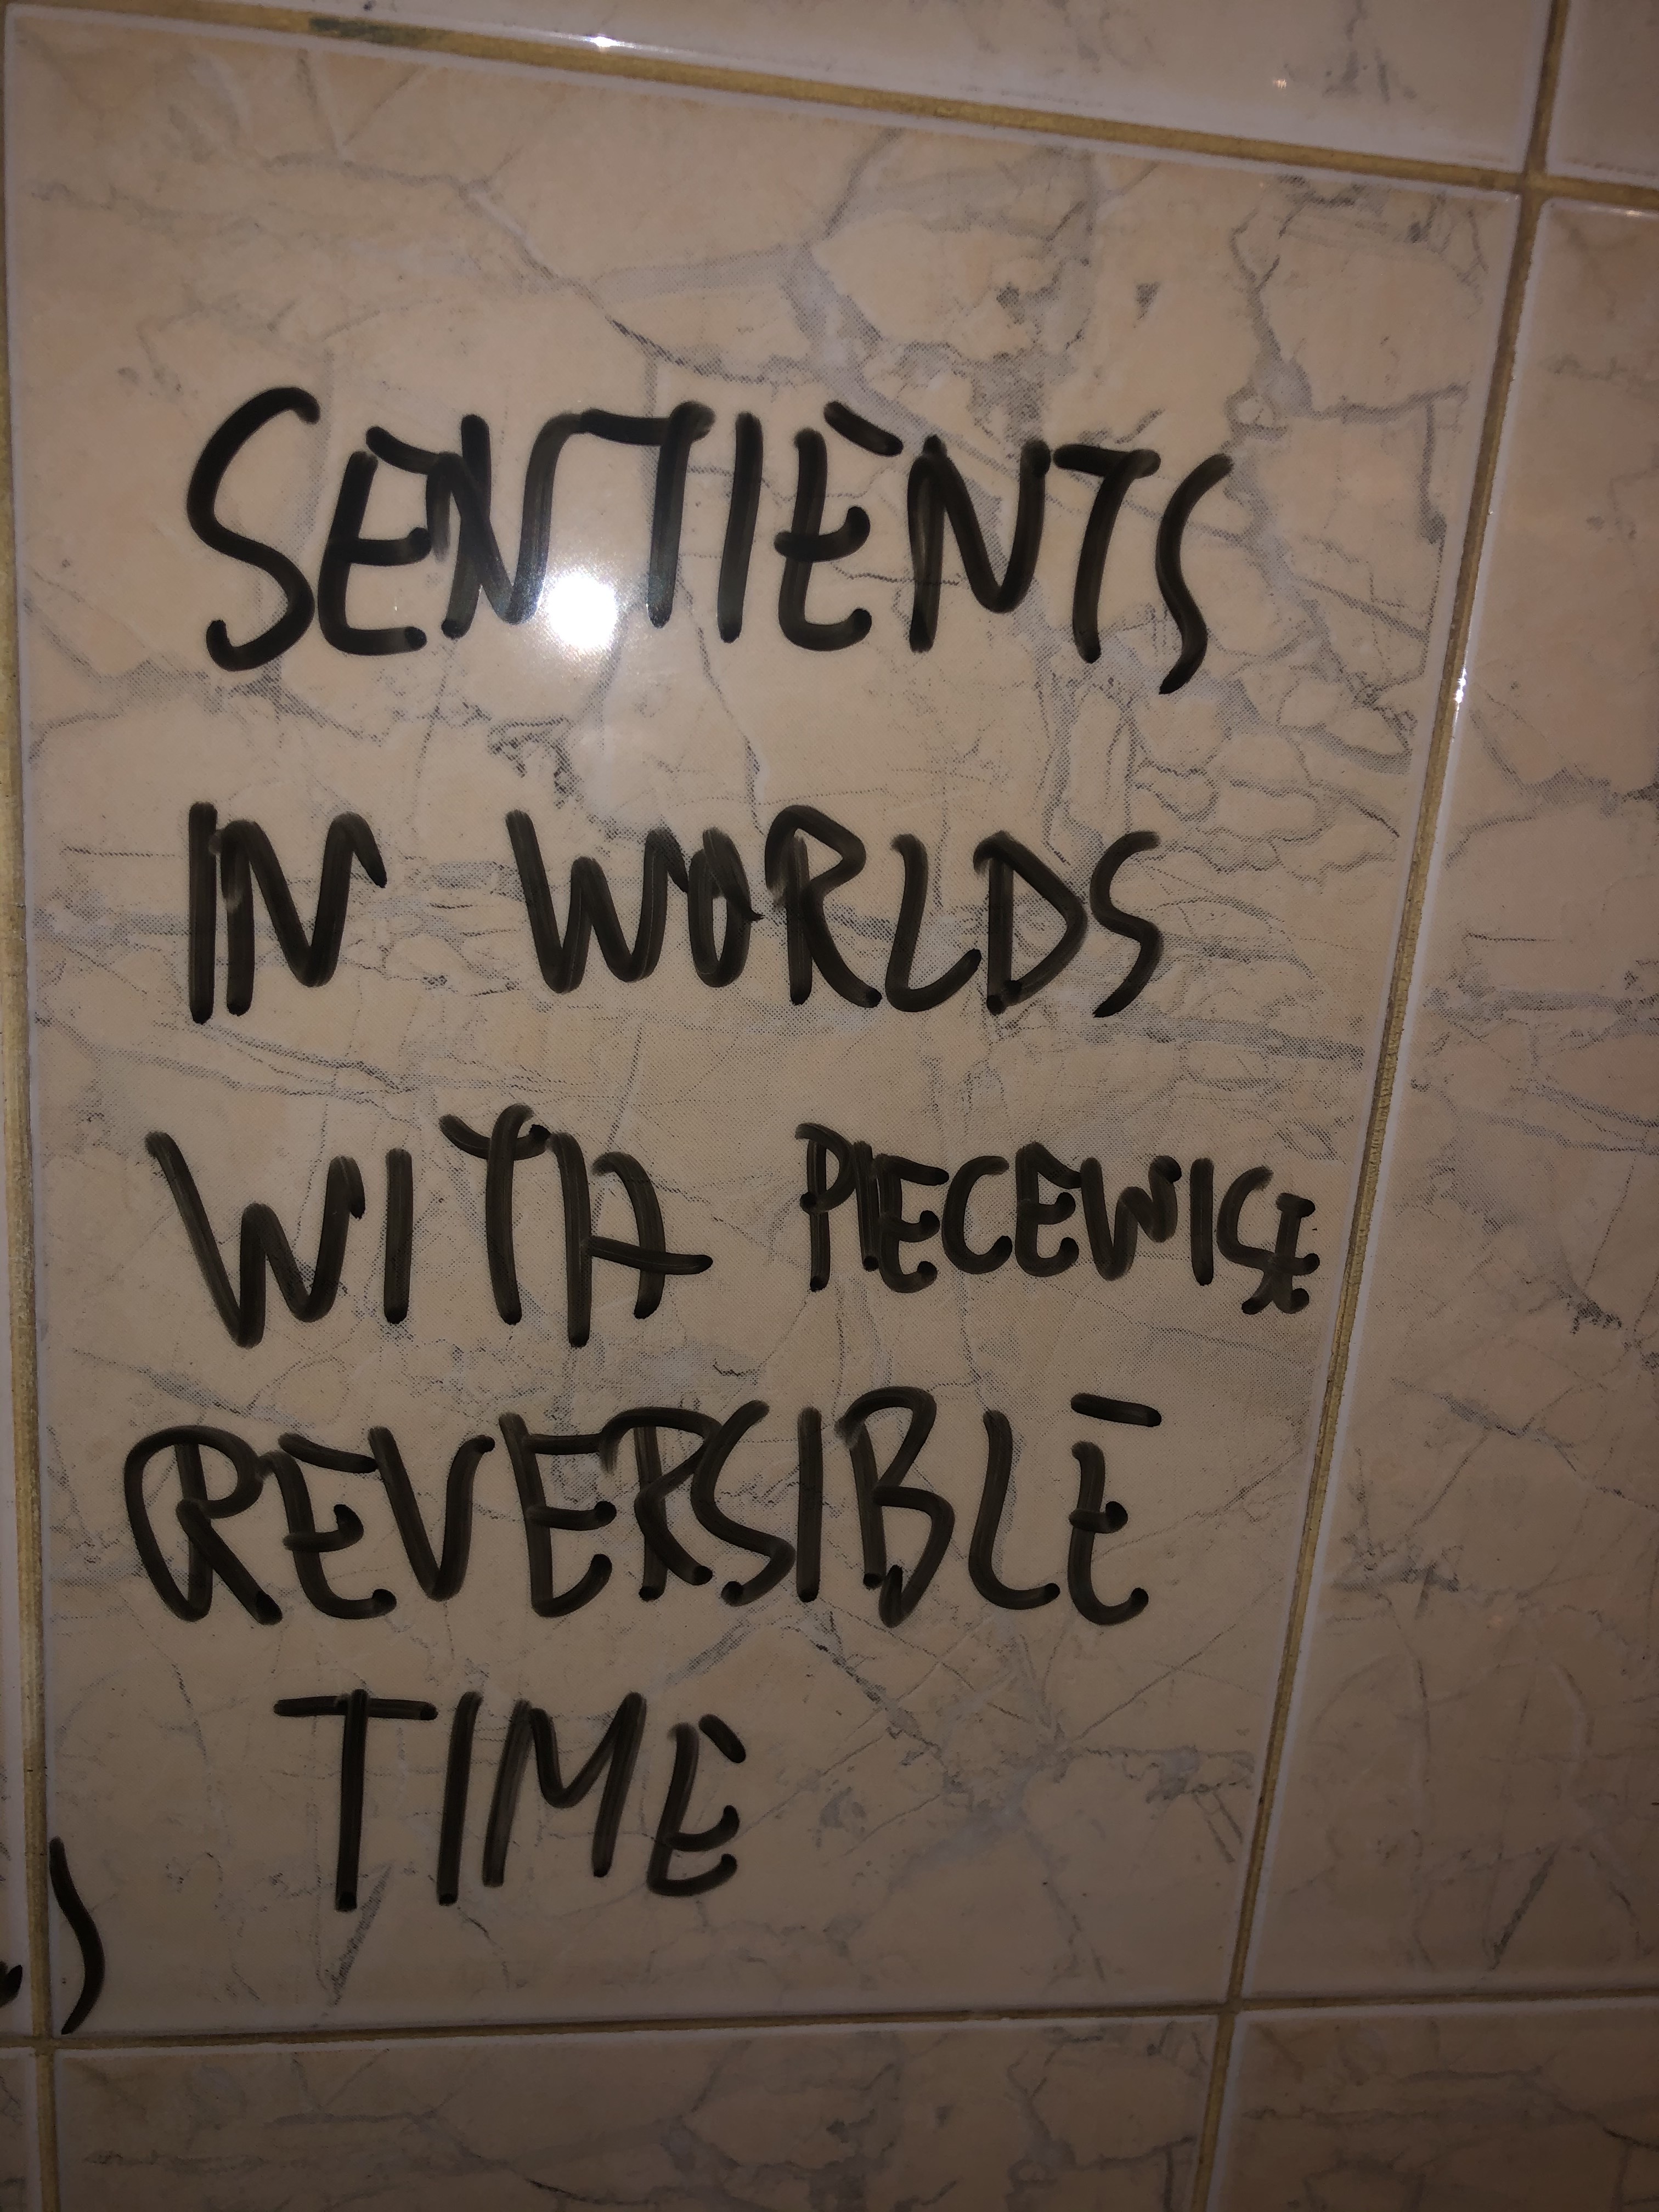 SENTIENTS
IN WORLDS
WITH PIECEWISE
REVERSIBLE
TIME
)